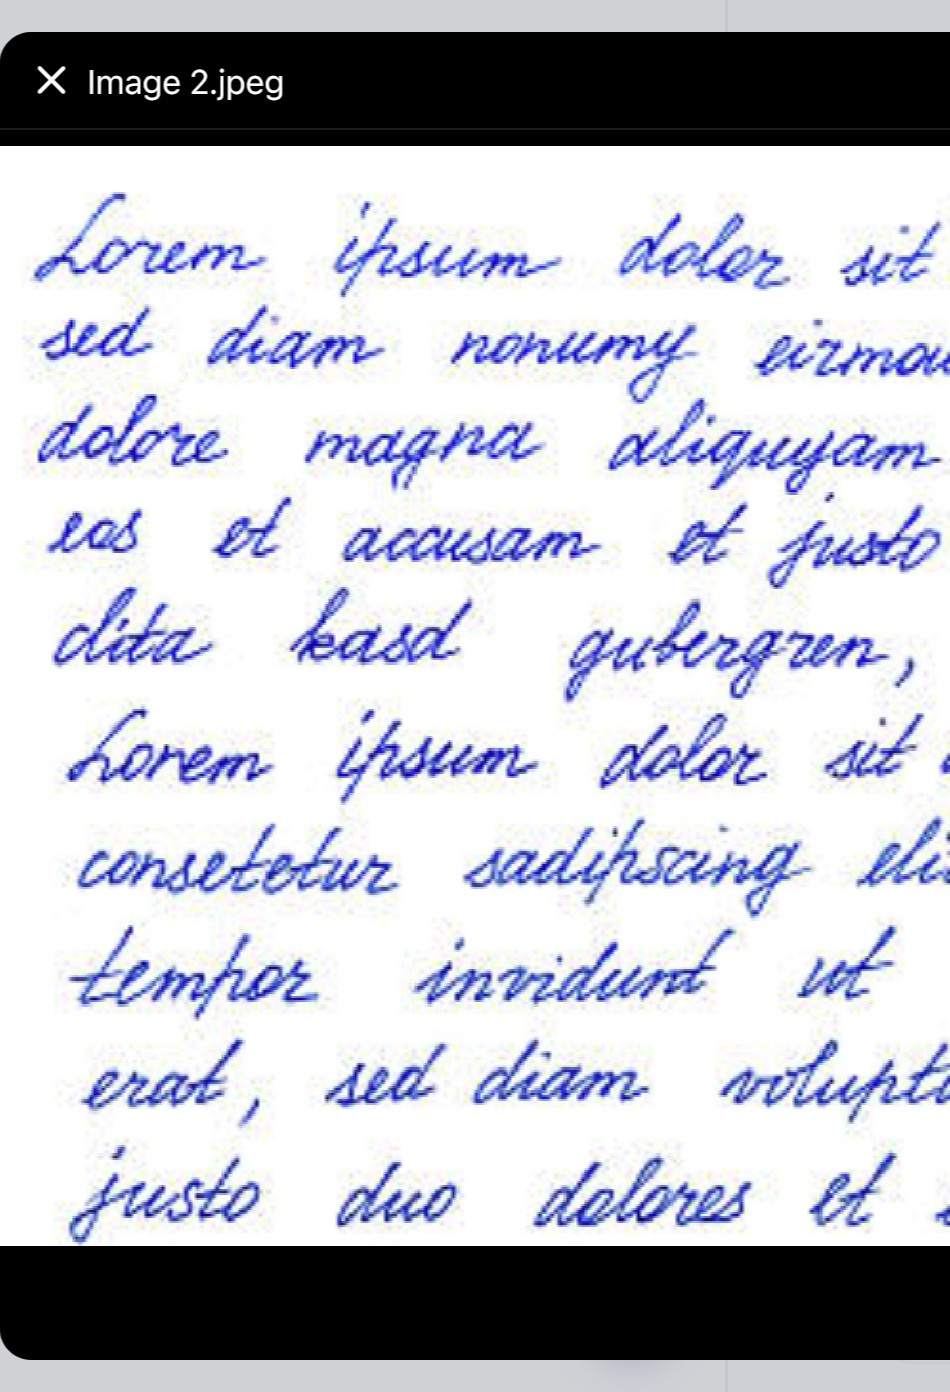 Image 2.jpeg
Lorem ipsum dolor sit
sed diam nonumy
dolore magna aliquyam
eos et accusam et justo
dita kasd gubergren,
Lorem ipsum dolor sit
consetetur sadipscing
tempor invidunt ut
erat, sed diam
justo duo dolores et